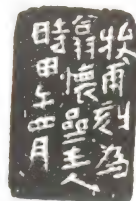 牧甫刻為
懷主人
時甲午四月